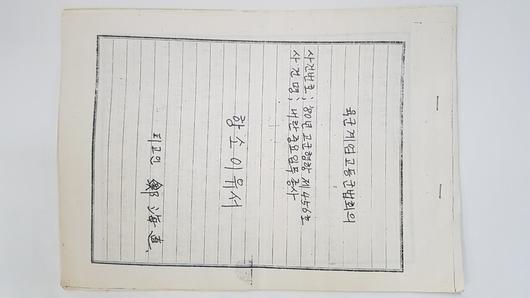 육군계엄고등군법회의
사건번호; 80년 고군형항 제456호
사건명; 내란중요임무종사
항소이유서
피고인 鄭